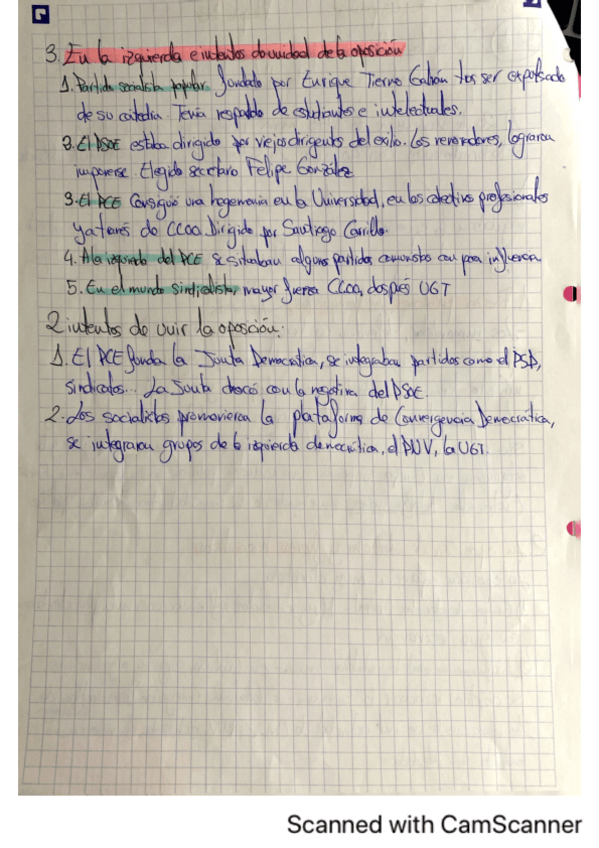 3. En la izquierda e intentos de unidad de la oposición
1. Partido socialista popular fundado por Enrique Tierno Galván tras ser expulsado
de su catedra. Tenía respaldo de estudiantes e intelectuales.
2. El PSOE estaba dirigido por viejos dirigentes del exilio. Los renovadores, lograron
imponerse. Elegido secretario Felipe González
3. El PCE Consiguió una hegemonia en la Universidad, en los colectivos profesionales
y a través de CCOO. Dirigido por Santiago Carrillo.
4. A la izquierda del PCE se situaban algunos partidos comunistas con poca influencia.
5. En el mundo sindicalista, mayor fuerza CCOO, después UGT
2 intentos de unir la oposición:
1. El PCE funda la Junta Democratica, se integraban partidos como el PSP,
sindicatos... La Junta chocó con la negativa del PSOE.
2. Los socialistas promovieron la plataforma de Convergencia Democratica,
se integraron grupos de la izquierda democrática, el PNV, la UGT.
Scanned with CamScanner